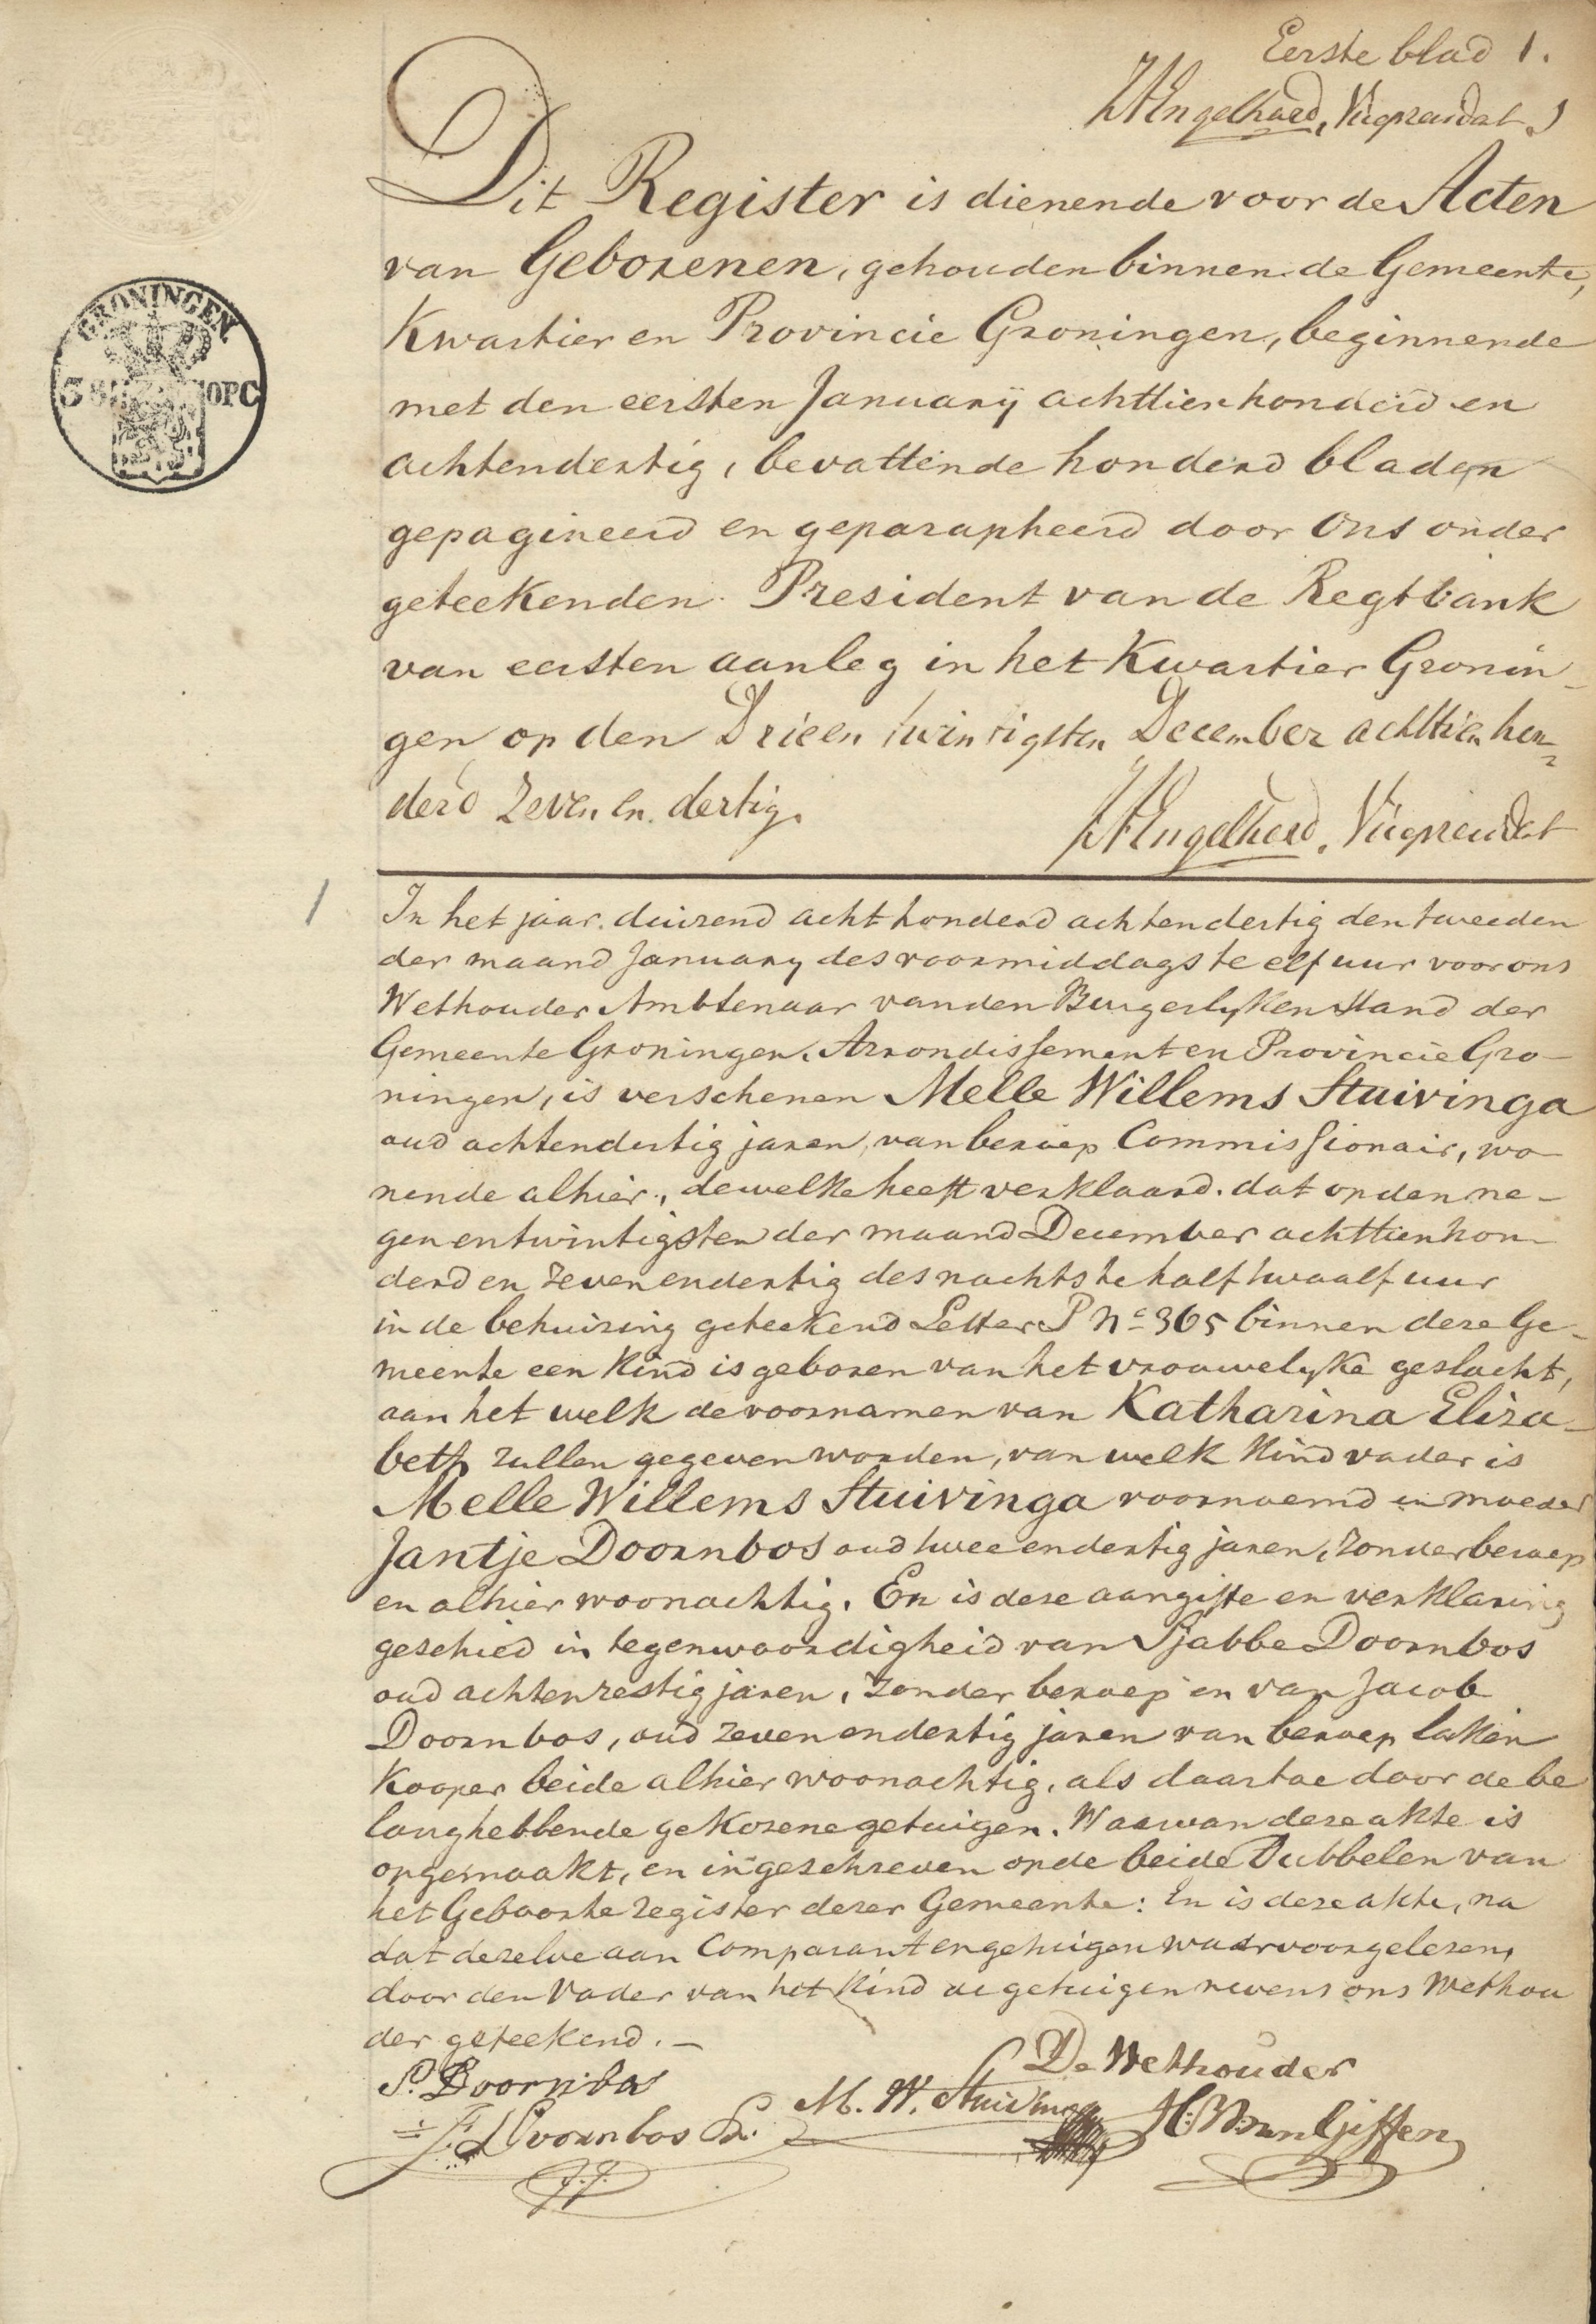 Eerste blad 1.
Engelhard, Vicepresident
Dit Register is dienende voor de Acten
van Geborenen, gehouden binnen de Gemeente,
Kwartier en Provincie Groningen, beginnende
met den eersten Januarÿ achttienhonderd en
achtendertig, bevattende honderd bladen
gepagineerd en geparapheerd door ons onder
geteekenden President van de Regtbank
van eersten aanleg in het Kwartier Gronin-
gen op den Drieen twintigsten December achttien hon-
derd Zeven en dertig.
Engelhard, Vicepresident
GRONINGEN
OPC
1
In het jaar duizend acht honderd achtendertig den tweeden
der maand January des voormiddags te elf uur voor ons
Wethouder Ambtenaar van den Burgerlyken Stand der
Gemeente Groningen, Arrondissement en Provincie Gro-
ningen, is verschenen Melle Willems Stuivinga
oud achtendertig jaren, van beroep Commissionair, wo-
nende alhier, dewelke heeft verklaard dat op den ne-
genentwintigsten der maand December achttienhon-
derd en zevenendertig des nachts te half twaalf uur
in de behuizing geteekend Letter P No 365 binnen deze Ge-
meente een Kind is geboren van het vrouwelyke geslacht,
aan het welk de voornamen van Katharina Eliza-
beth zullen gegeven worden, van welk Kind vader is
Melle Willems Stuivinga voornoemd en moeder
Jantje Doornbos oud tweeendertig jaren, zonder beroep
en alhier woonachtig. En is deze aangifte en verklaring
geschied in tegenwoordigheid van Sjabbe Doornbos
oud achtenzestig jaren, zonder beroep en van Jacob
Doornbos, oud zevenendertig jaren van beroep laken
Kooper beide alhier woonachtig, als daartoe door de be
langhebbende gekozene getuigen. Waarvan deze akte is
opgemaakt, en ingeschreven op de beide Dubbelen van
het Geboorte register dezer Gemeente: En is deze akte, na
dat dezelve aan Comparant en getuigen was voorgelezen,
door den Vader van het Kind de getuigen nevens ons Wethou
der geteekend. -
De Wethouder
S. Doornbos
M. W. Stuivinga
H. van Giffen
J. Doornbos